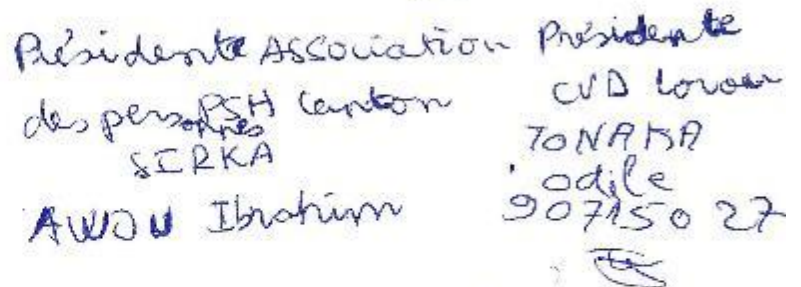 Présidente Association
des personnes PSH Canton
SIRKA
AWOU Ibrahim
Présidente
CVD
TONAKA
Odile
90715027